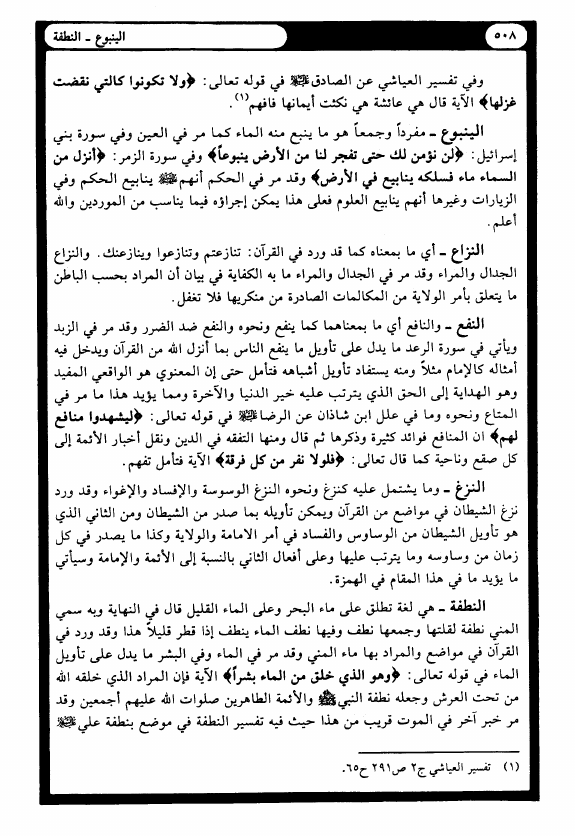 ٥٠٨
الينبوع - النطفة
وفي تفسير العياشي عن الصادق ﷺ في قوله تعالى: ﴿ولا تكونوا كالتي نقضت
غزلها﴾ الآية قال هي عائشة هي نكثت أيمانها فافهم(١).
الينبوع - مفرداً وجمعاً هو ما ينبع منه الماء كما مر في العين وفي سورة بني
إسرائيل: ﴿لن نؤمن لك حتى تفجر لنا من الأرض ينبوعاً﴾ وفي سورة الزمر: ﴿أنزل من
السماء ماء فسلكه ينابيع في الأرض﴾ وقد مر في الحكم أنهم ﷺ ينابيع الحكم وفي
الزيارات وغيرها أنهم ينابيع العلوم فعلى هذا يمكن إجراؤه فيما يناسب من الموردين والله
أعلم.
النزاع - أي ما بمعناه كما قد ورد في القرآن: تنازعتم وتنازعوا وينازعنك. والنزاع
الجدال والمراء وقد مر في الجدال والمراء ما به الكفاية في بيان أن المراد بحسب الباطن
ما يتعلق بأمر الولاية من المكالمات الصادرة من منكريها فلا تغفل.
النفع - والنافع أي ما بمعناهما كما ينفع ونحوه والنفع ضد الضرر وقد مر في الزبد
ويأتي في سورة الرعد ما يدل على تأويل ما ينفع الناس بما أنزل الله من القرآن ويدخل فيه
أمثاله كالإمام مثلاً ومنه يستفاد تأويل أشباهه فتأمل حتى إن المعنوي هو الواقعي المفيد
وهو الهداية إلى الحق الذي يترتب عليه خير الدنيا والآخرة ومما يؤيد هذا ما مر في
المتاع ونحوه وما في علل ابن شاذان عن الرضا ﷺ في قوله تعالى: ﴿ليشهدوا منافع
لهم﴾ ان المنافع فوائد كثيرة وذكرها ثم قال ومنها التفقه في الدين ونقل أخبار الأئمة إلى
كل صقع وناحية كما قال تعالى: ﴿فلولا نفر من كل فرقة﴾ الآية فتأمل تفهم.
النزغ - وما يشتمل عليه كنزغ ونحوه النزغ الوسوسة والإفساد والإغواء وقد ورد
نزغ الشيطان في مواضع من القرآن ويمكن تأويله بما صدر من الشيطان ومن الثاني الذي
هو تأويل الشيطان من الوساوس والفساد في أمر الامامة والولاية وكذا ما يصدر في كل
زمان من وساوسه وما يترتب عليها وعلى أفعال الثاني بالنسبة إلى الأئمة والإمامة وسيأتي
ما يؤيد ما في هذا المقام في الهمزة.
النطفة - هي لغة تطلق على ماء البحر وعلى الماء القليل قال في النهاية وبه سمي
المني نطفة لقلتها وجمعها نطف وفيها نطف الماء ينطف إذا قطر قليلاً هذا وقد ورد في
القرآن في مواضع والمراد بها ماء المني وقد مر في الماء وفي البشر ما يدل على تأويل
الماء في قوله تعالى: ﴿وهو الذي خلق من الماء بشراً﴾ الآية فإن المراد الذي خلقه الله
من تحت العرش وجعله نطفة النبي ﷺ والأئمة الطاهرين صلوات الله عليهم أجمعين وقد
مر خبر آخر في الموت قريب من هذا حيث فيه تفسير النطفة في موضع بنطفة علي ﷺ
(١) تفسير العياشي ج٢ ص٢٩١ ح٦٥.